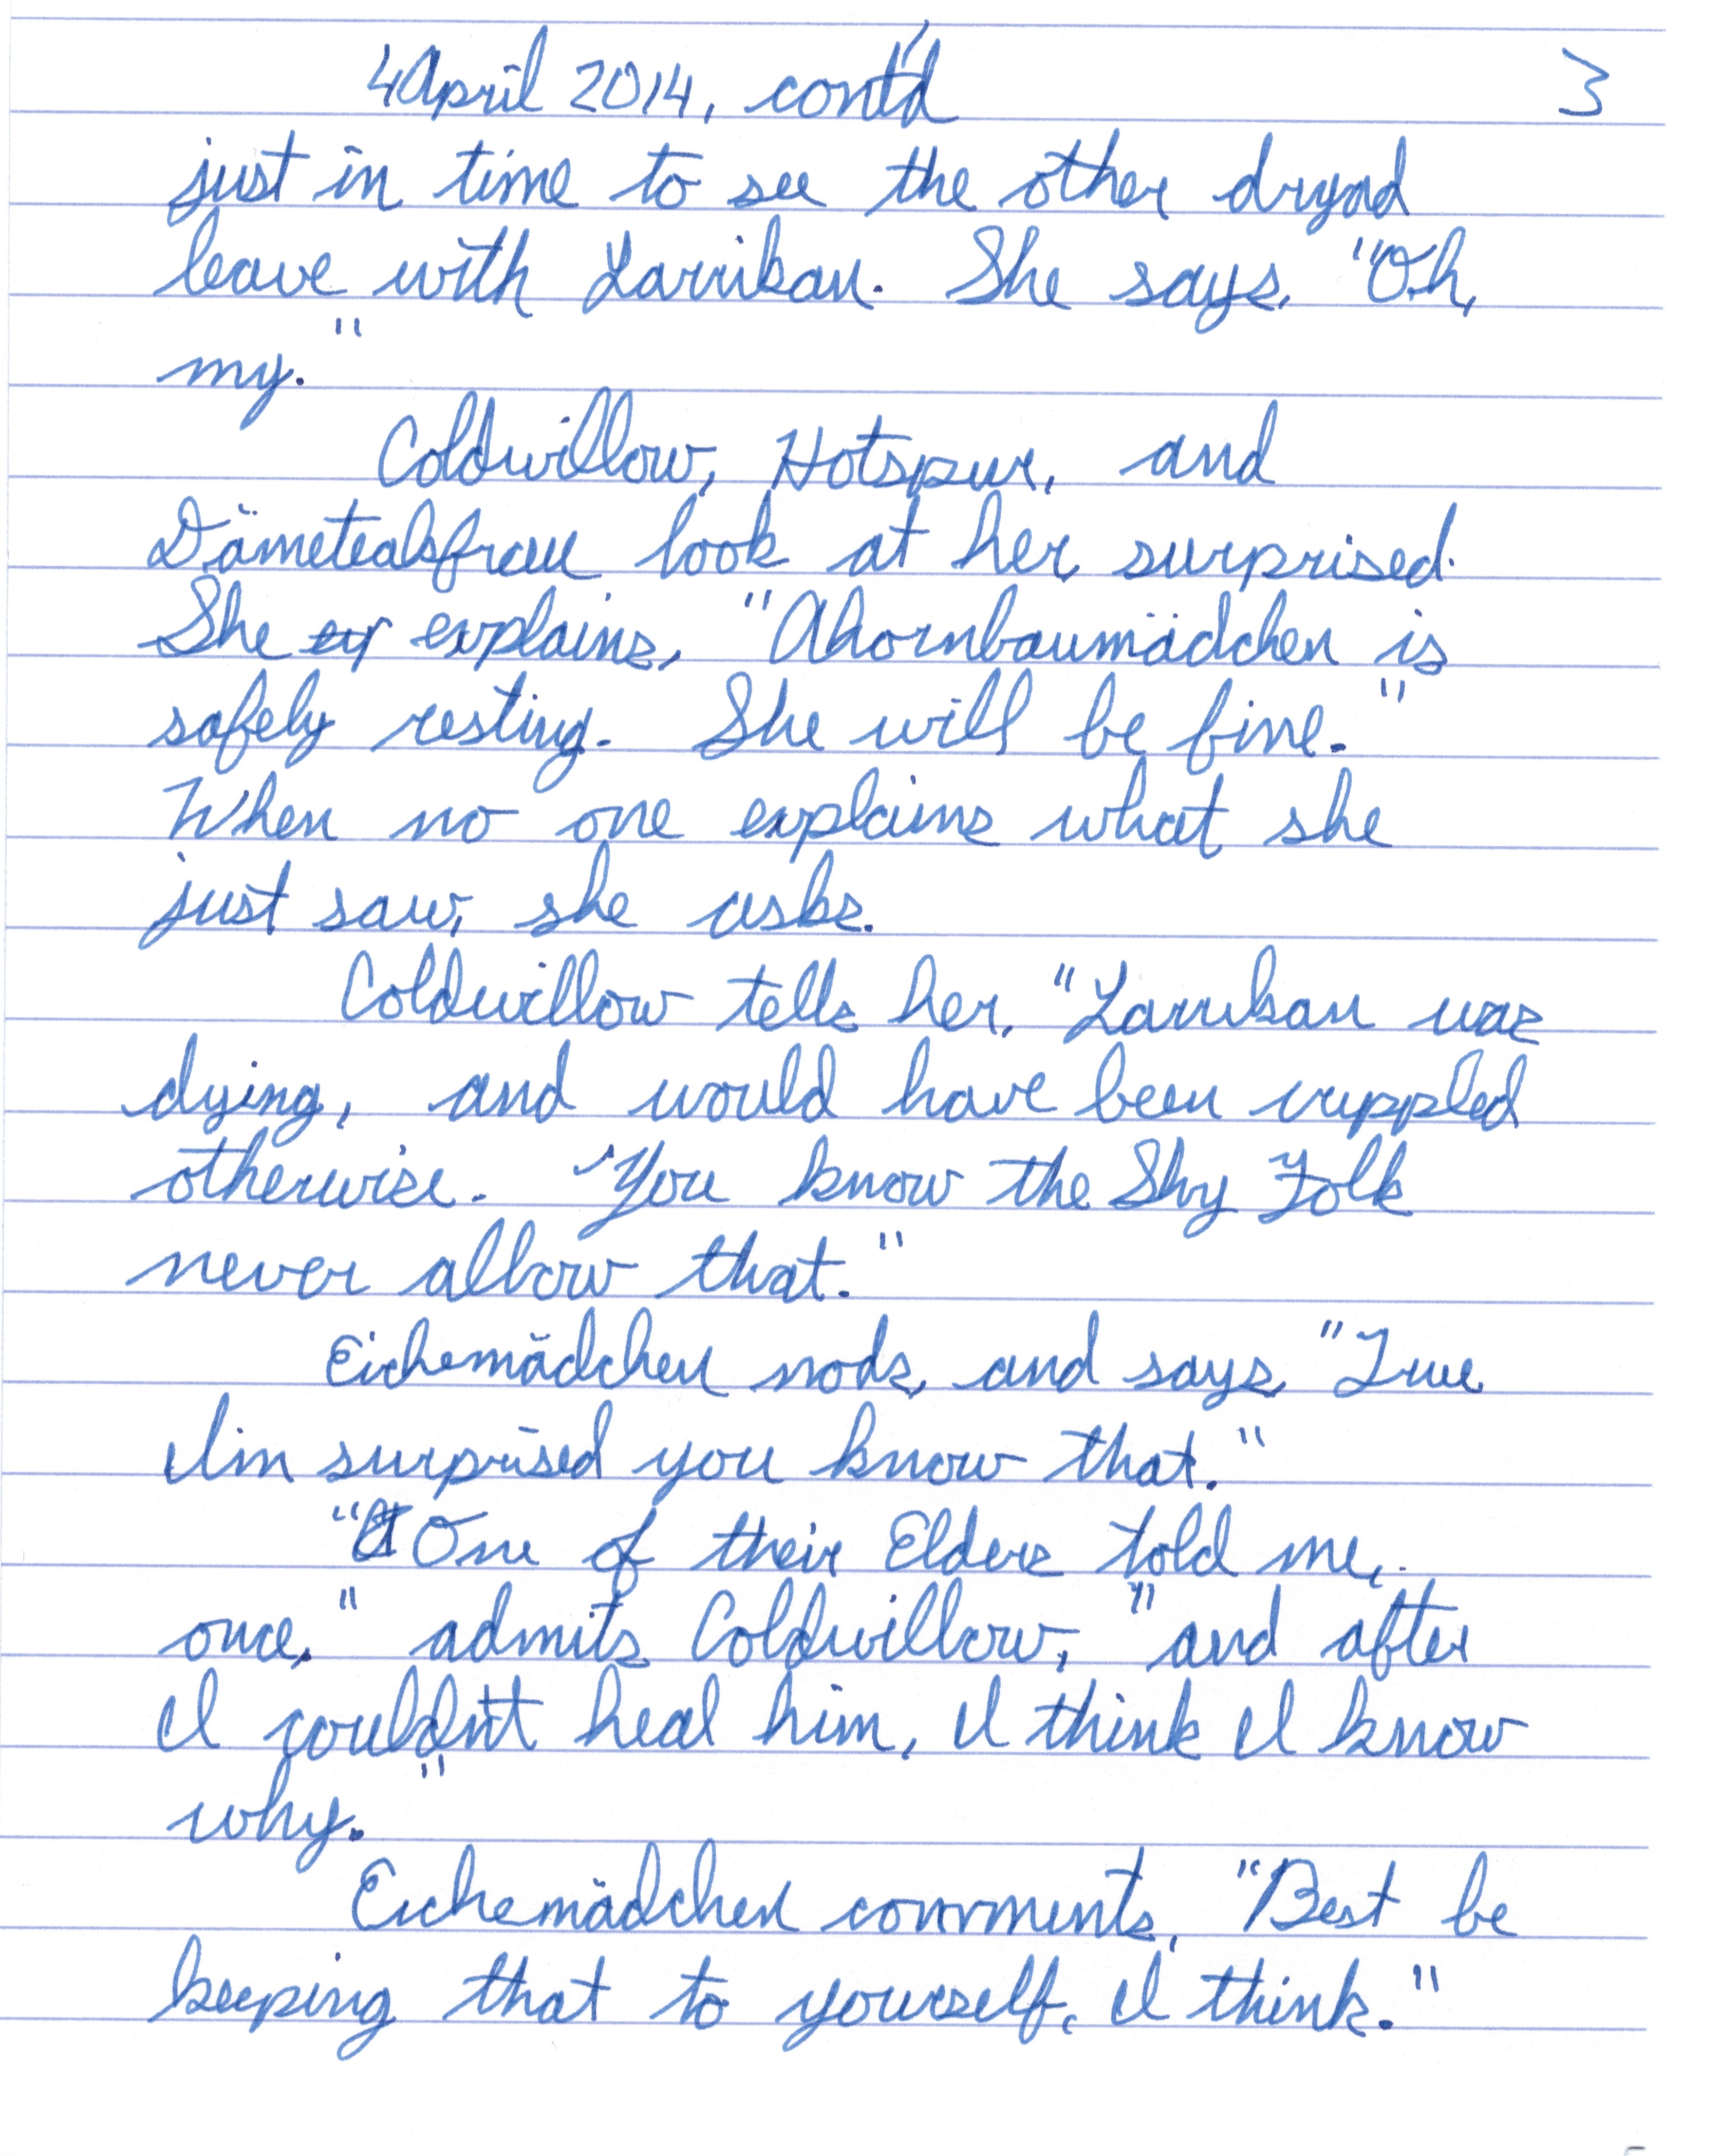 4 April 2014, cont'd 3
just in time to see the other dryad
leave with Larrikan. She says, "Oh,
my."
Coldwillow, Hotspur, and
Dämetealsfrau look at her, surprised.
She ex explains, "Ahornbaumädchen is
safely resting. She will be fine."
When no one explains what she
just saw, she asks.
Coldwillow tells her, "Larrikan was
dying, and would have been crippled
otherwise. You know the Shy Folk
never allow that."
Eichemädchen nods, and says, "True.
I'm surprised you know that."
"One of their Elders told me,
once," admits Coldwillow, "and after
I couldn't heal him, I think I know
why."
Eichemädchen comments, "Best be
keeping that to yourself, I think."